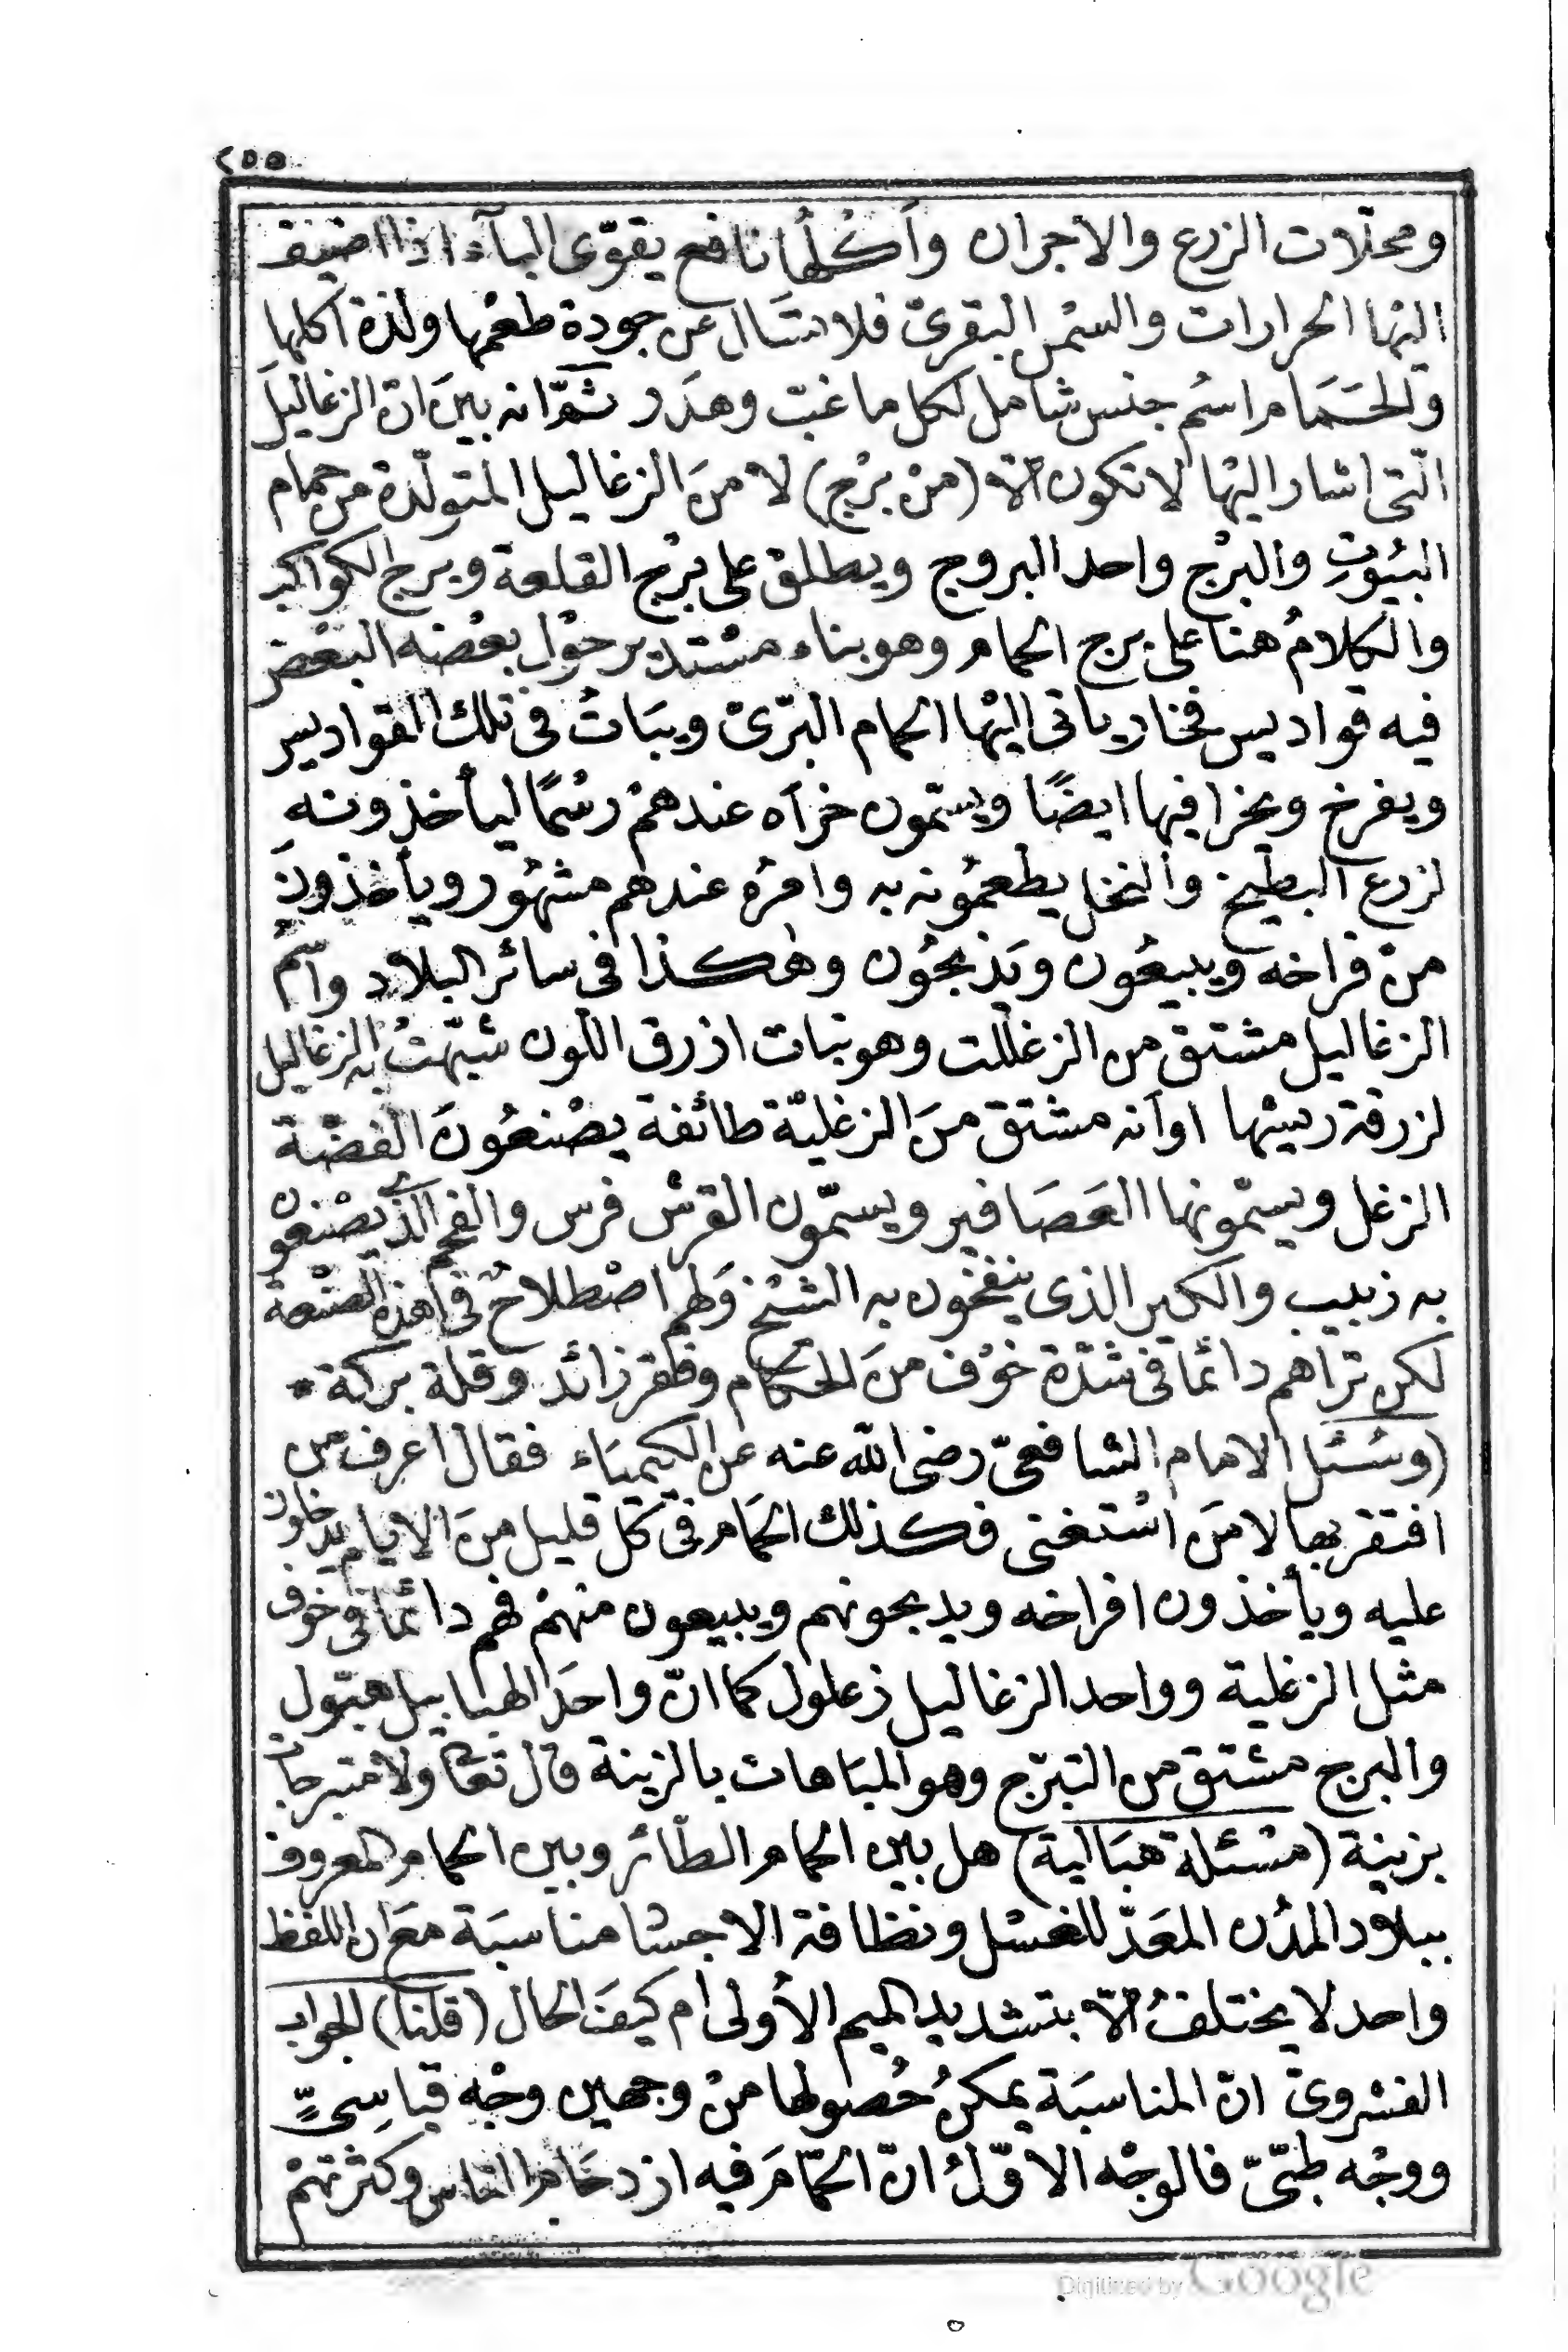 ٢٥٥
ومحلّات الزرع والاجران وأكلُها نافع يقوّى البآء اذا اضيف
اليْها الحرارات والسمْن البقرىّ فلا تسَال عن جودة طعْمها ولذة اكلها
والحَمَام اسُم جنس شامل لكل ما غبّ وهدَر ثمّ انه بينَ انّ الزغاليلَ
الّتى اشار اليْها لا تكون الّا (منْ برْج) لا منَ الزغاليل المتولّدة من حمام
البيُوتِ والبرْج واحد البروج ويطلقْ على برْج القلعة وبرج الكواكب
والكلامُ هنا على برج الحمام وهو بناء مسْتدير حوْل بعْضه البعْض
فيه قواديس فخار ياتى اليْها الحمام البرّىْ ويبَاتُ فى تلك القواديس
ويفرخ ويخرا فيها ايضًا ويسمّون خرآه عندهمْ رسْمًا ليأخذونهِ
لزرع البطيخ والنخل يطْعمُونه به وامرُه عندهم مشهُور ويأخذونِ
منْ فراخه ويبيعُون ويَذبحُون وهٰكذا فى سائر البلاد واسْم
الزغاليل مشتق من الزغللت وهو نبات ازرق اللّون شبّهتُ به الزغاليل
لزرقة ريشها اوانه مشتق منَ الزغليّة طائفة يصْنعُونَ الفضّة
الزغل ويسمّونها العَصَافير ويسمّون القرش فرس والفحم الذى يصْنعون
به زبيب والكير الذى ينفخون به الشيْخ وَلهم اصْطلاحٌ فى هذه الصنْعة
لكن تراهم دائما فى شدّة خوْف منَ الحكّام وفقر زائد وقلة بركة *
(وسُئل الامام الشافعىّ رضى الله عنه عن الكيميَاء فقال اعرف من
افتقر بها لا منَ اسْتغنى فكذلك الحَمام فى كلّ قليل منَ الايام يدخلون
عليه ويأخذون افراخه ويدبحونهم ويبيعون منهمْ فهم دائما فى خوْف
مثل الزغلية وواحد الزغاليل زعلول كما انّ واحدَ الهبابيل هبّول
والبرج مشتق من التبرّج وهو المبَاهات بالزينة قال تعَا ولا متبرجات
بزينة (مسْئلة هبَالية) هل بين الحمام الطّائر وبين الحمام المعروف
ببلاد المدُن المعَدّ للغسْل ونظافة الاجسَا مناسبَة معَ ان اللفظ
واحد لا يختلفُ الّا بتشديد الميم الأولى ام كيفَ الحال (قلنا) الجواب
الفشروىّ انّ المناسبَة يمكنُ حُصولها منْ وجهين وجْه قياسِىٍّ
ووجْه طبّىّ فالوجْه الاوّلُ انّ الحمّامَ فيه ازدحَام الناس وكثرتهمْ
Digitized by Google